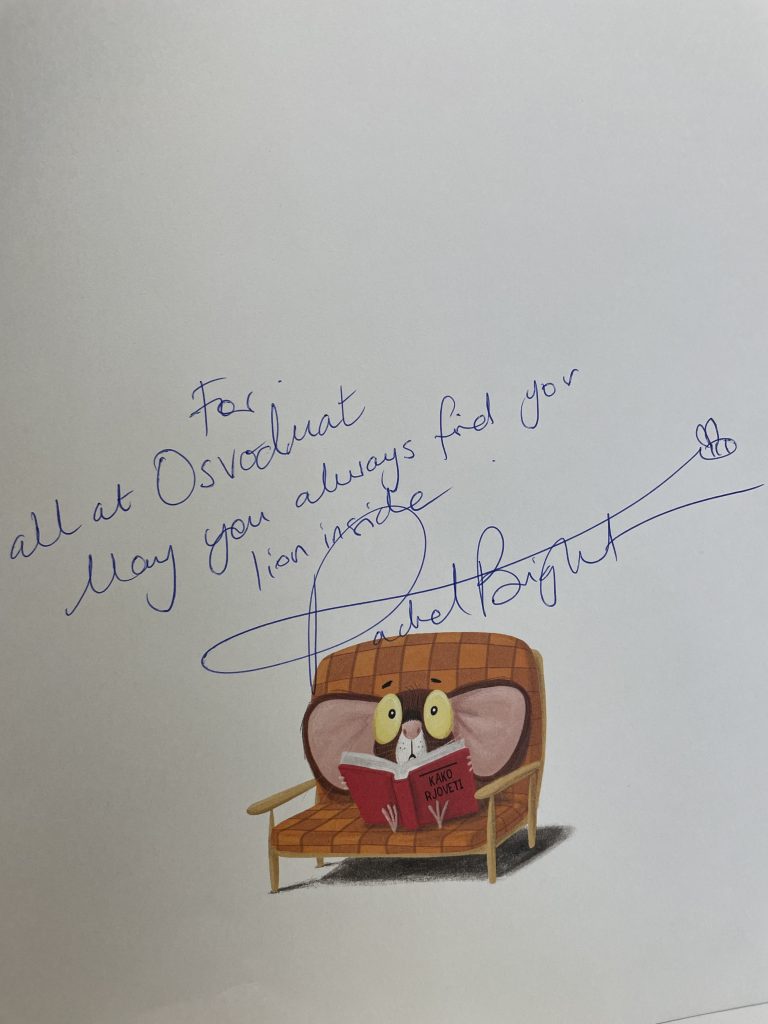 For
all at Osvoduat
May you always find yor
lion inside.
Rachel Bright
KAKO
RJOVETI